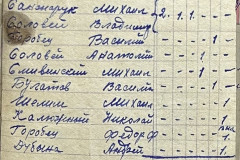 Самандрук Михаил 2. 1. 1. - - -
Соловей Владимир - - - - -
Горобец Василий - - - - 1 -
Соловей Анатолий - - - 1 -
Сливинский Михаил - - - - 1 -
Булатов Василий - - - - 1 -
Шелип Михаил - - - - 1 -
Калюжный Николай - - - - 1
Горобец Федор Ф - - - - 1
Дубина Андрей - - - - 1.